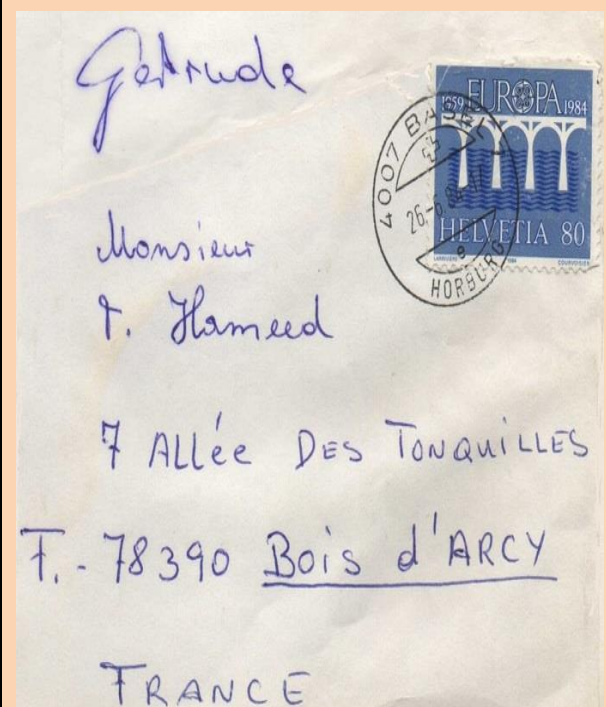 Gertrude
EUROPA
1959 1984
HELVETIA 80
4007 BASEL 7
26.-6.84
9
HORBURG
Monsieur
T. Hameed
7 ALLée DES TONQUILLES
F.- 78390 Bois d'ARCY
FRANCE